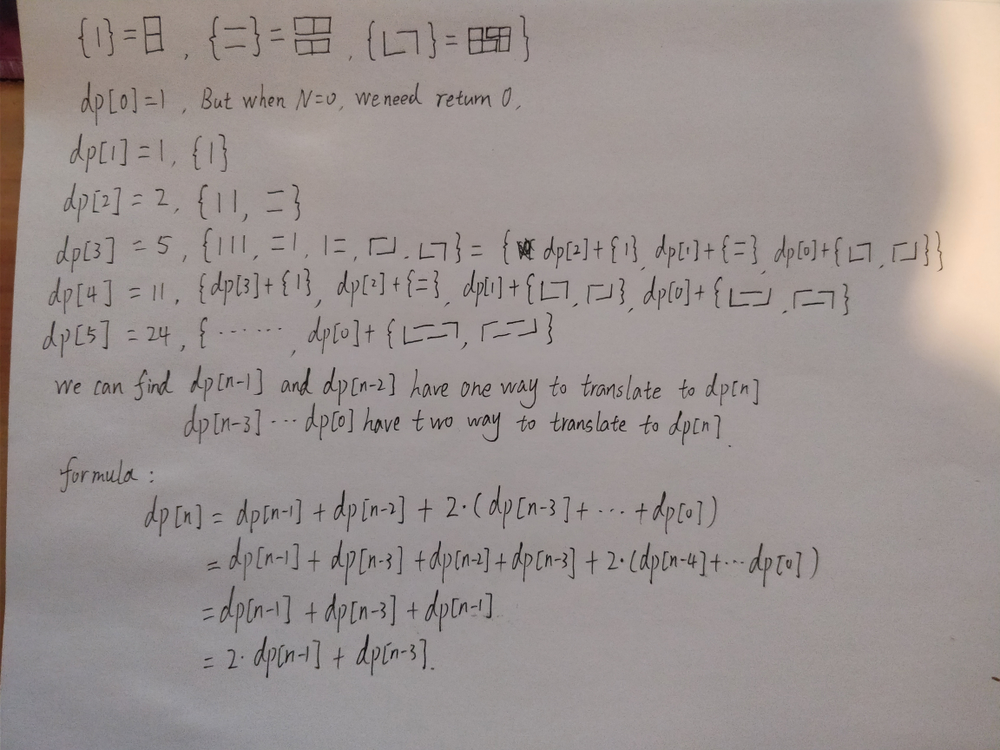 {|} = 日, { 二 } = 吕, { ∟ㄱ } = ⊞ }
dp[0]=1, But when N=0, we need return 0,
dp[1] = 1, {|}
dp[2] = 2, { | |, 二 }
dp[3] = 5, { | | |, 二 |, | 二, ┌┘, └┐ } = { dp[2]+{|}, dp[1]+{二}, dp[0]+{ └┐, ┌┘ } }
dp[4] = 11, { dp[3]+{|}, dp[2]+{二}, dp[1]+{ └┐, ┌┘ }, dp[0]+{ └─┘, ┌─┐ }
dp[5] = 24, { ······, dp[0]+{ └──┐, ┌──┘ }
we can find dp[n-1] and dp[n-2] have one way to translate to dp[n]
dp[n-3] ··· dp[0] have two way to translate to dp[n].
formula :
dp[n] = dp[n-1] + dp[n-2] + 2·( dp[n-3] + ··· + dp[0] )
= dp[n-1] + dp[n-3] + dp[n-2] + dp[n-3] + 2·( dp[n-4] + ··· dp[0] )
= dp[n-1] + dp[n-3] + dp[n-1]
= 2· dp[n-1] + dp[n-3].